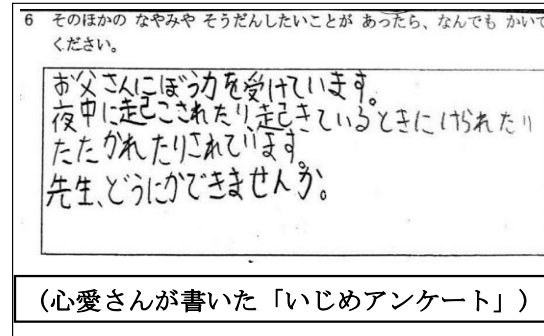 6 そのほかの なやみや そうだんしたいことが あったら、なんでも かいて
ください。
お父さんにぼう力を受けています。
夜中に起こされたり、起きているときにけられたり
たたかれたりされています。
先生、どうにかできませんか。
(心愛さんが書いた「いじめアンケート」)